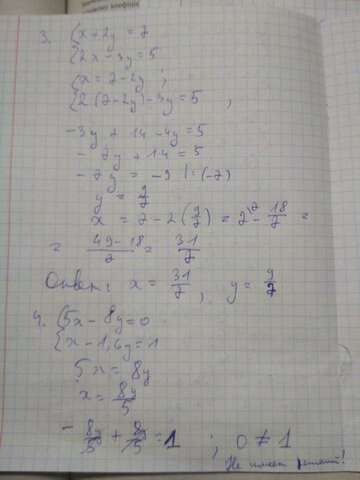 3. { x + 2y = 7
{ 2x - 3y = 5
{ x = 7 - 2y ;
{ 2(7 - 2y) - 3y = 5 ,
-3y + 14 - 4y = 5
- 7y + 14 = 5
- 7y = -9 | : (-7)
y = 9/7
x = 7 - 2(9/7) = 7 - 18/7 =
= (49 - 18)/7 = 31/7
Ответ: x = 31/7 ; y = 9/7
4. { 5x - 8y = 0
{ x - 1,6y = 1
5x = 8y
x = 8y/5
- 8y/5 + 8y/5 = 1 ; 0 ≠ 1
Не имеет решений!